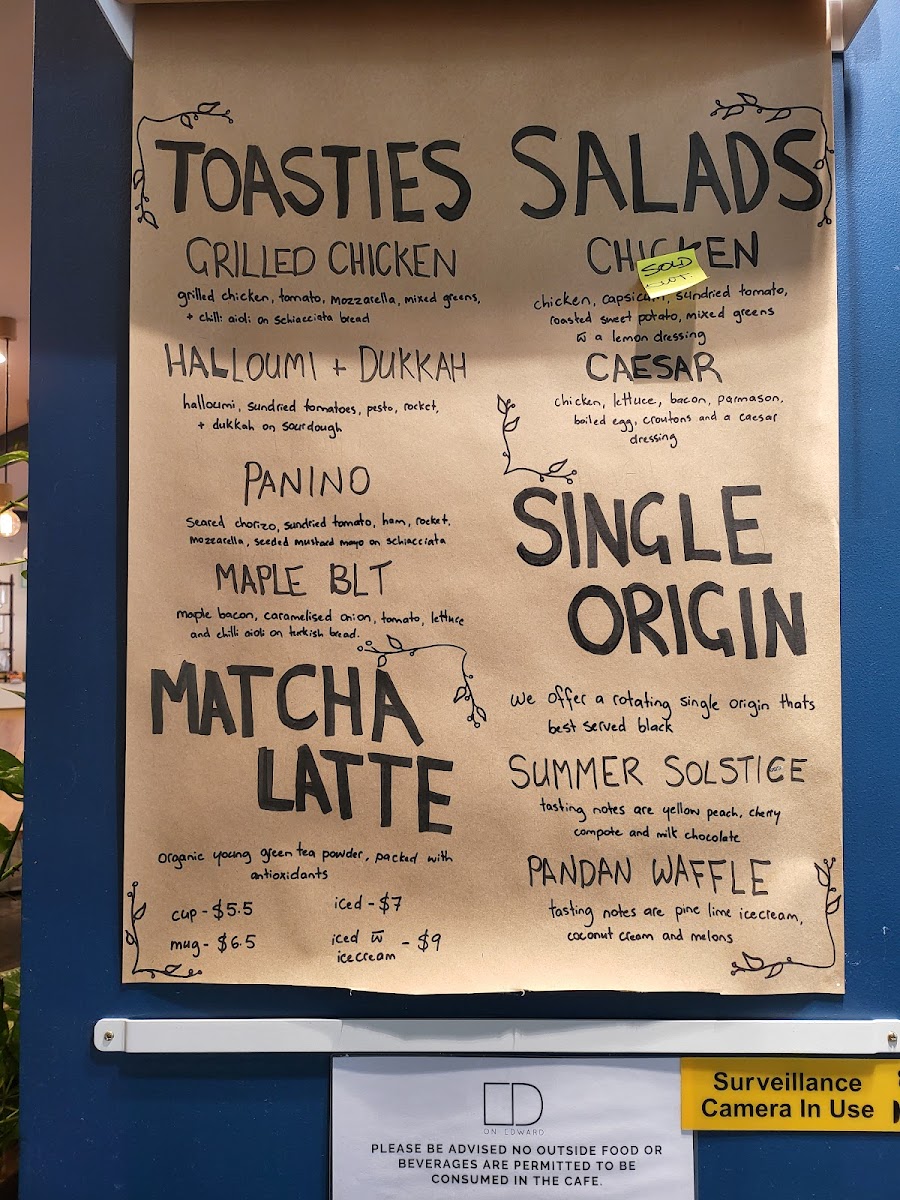 TOASTIES
GRILLED CHICKEN
grilled chicken, tomato, mozzarella, mixed greens,
+ chilli aioli on schiacciata bread
HALLOUMI + DUKKAH
halloumi, sundried tomatoes, pesto, rocket,
+ dukkah on sourdough
PANINO
seared chorizo, sundried tomato, ham, rocket,
mozzarella, seeded mustard mayo on schiacciata
MAPLE BLT
maple bacon, caramelised onion, tomato, lettuce
and chilli aioli on turkish bread.
MATCHA
LATTE
organic young green tea powder, packed with
antioxidants
cup - $5.5
mug - $6.5
iced - $7
iced w̅ icecream - $9
SALADS
CHICKEN
SOLD
OUT.
chicken, capsicum, sundried tomato,
roasted sweet potato, mixed greens
w̅ a lemon dressing
CAESAR
chicken, lettuce, bacon, parmason,
boiled egg, croutons and a caesar
dressing
SINGLE
ORIGIN
we offer a rotating single origin thats
best served black
SUMMER SOLSTICE
tasting notes are yellow peach, cherry
compote and milk chocolate
PANDAN WAFFLE
tasting notes are pine lime icecream,
coconut cream and melons
ED
ON EDWARD
PLEASE BE ADVISED NO OUTSIDE FOOD OR
BEVERAGES ARE PERMITTED TO BE
CONSUMED IN THE CAFE.
Surveillance
Camera In Use